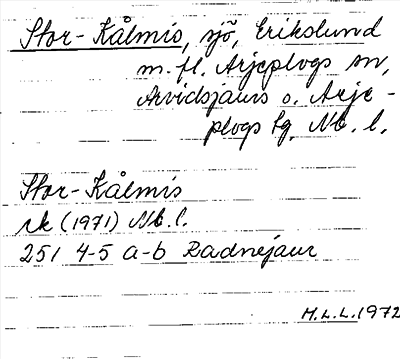 Stor-Kålmis, sjö, Erikslund
m. fl. Arjeplogs sn,
Arvidsjaurs o. Arje-
plogs tg, Nb. l.
Stor-Kålmis
rk (1971) Nb. l.
251 4-5 a-b Radnejaur
H.L.L. 1972